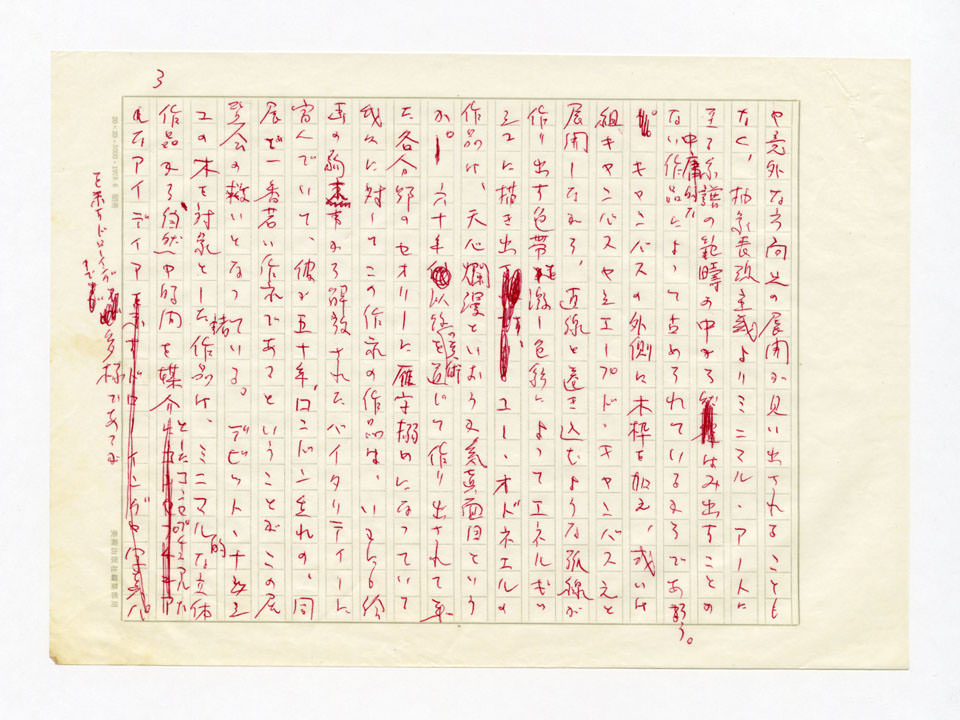 3
や意外な方向への展開が見い出されることも
なく、抽象表現主義よりミニマル・アートに
至る系譜の範疇の中からはみ出すことの
ない中庸的な作品によって占められているからであろう。
キャンバスの外側に木枠を加え、或いは
組キャンバスやシェープド・キャンバスえと
展開しながら、直線と巻き込むような弧線が
作り出す色帯は激しい色彩によってエネルギッ
シュに描き出す。ユー・オドネエルの
作品は、天心爛漫といおうか気真面目という
か。六十年以後の美術を通じて作り出されて来
た各分野のセオリーに雁字搦めになっていて
我々に対してこの作家の作品は、いかにも絵
画の約束事から解放されたバイタリティーに
富んでいて、彼が五十年、ロンドン生れの、同
展で一番若い作家であるということがこの展
覧会の救いとなっている。デビット・ナッシュ
この木を対象とした作品は、ミニマル的な立体
作品から自然の中の周囲を媒介としたコンセプチュアルな
アイディア
を示すドローイングまで多様であるが